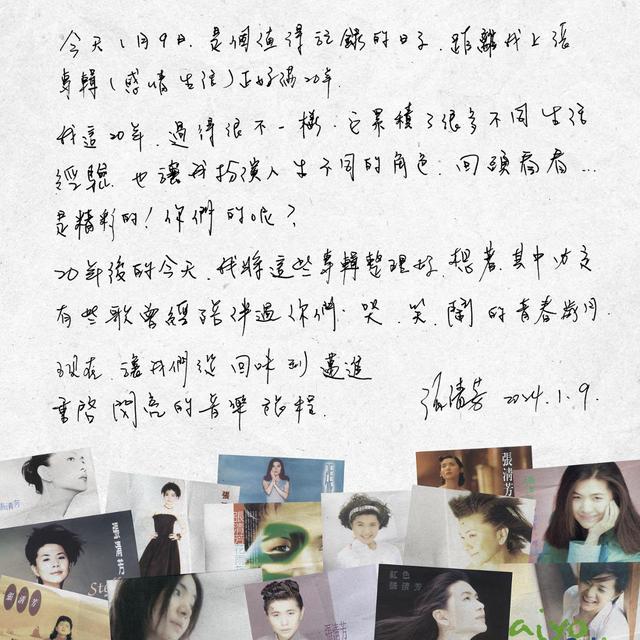 今天1月9日.是個值得記錄的日子.距離我上張
專輯(感情生活)正好滿20年.
我這20年.過得很不一樣.它累積了很多不同生活
經驗.也讓我扮演人生不同的角色.回頭看看...
是精彩的!你們的呢?
20年後的今天.我將這些專輯整理好.想著.其中必定
有些歌曾經陪伴過你們.哭.笑.鬧的青春歲月.
現在.讓我們從回味到邁進
重啓閃亮的音樂旅程.
張清芳 2024.1.9.
張清芳
張清芳
張清芳
張清芳
張清芳
紅色
張清芳
張清芳
aiya